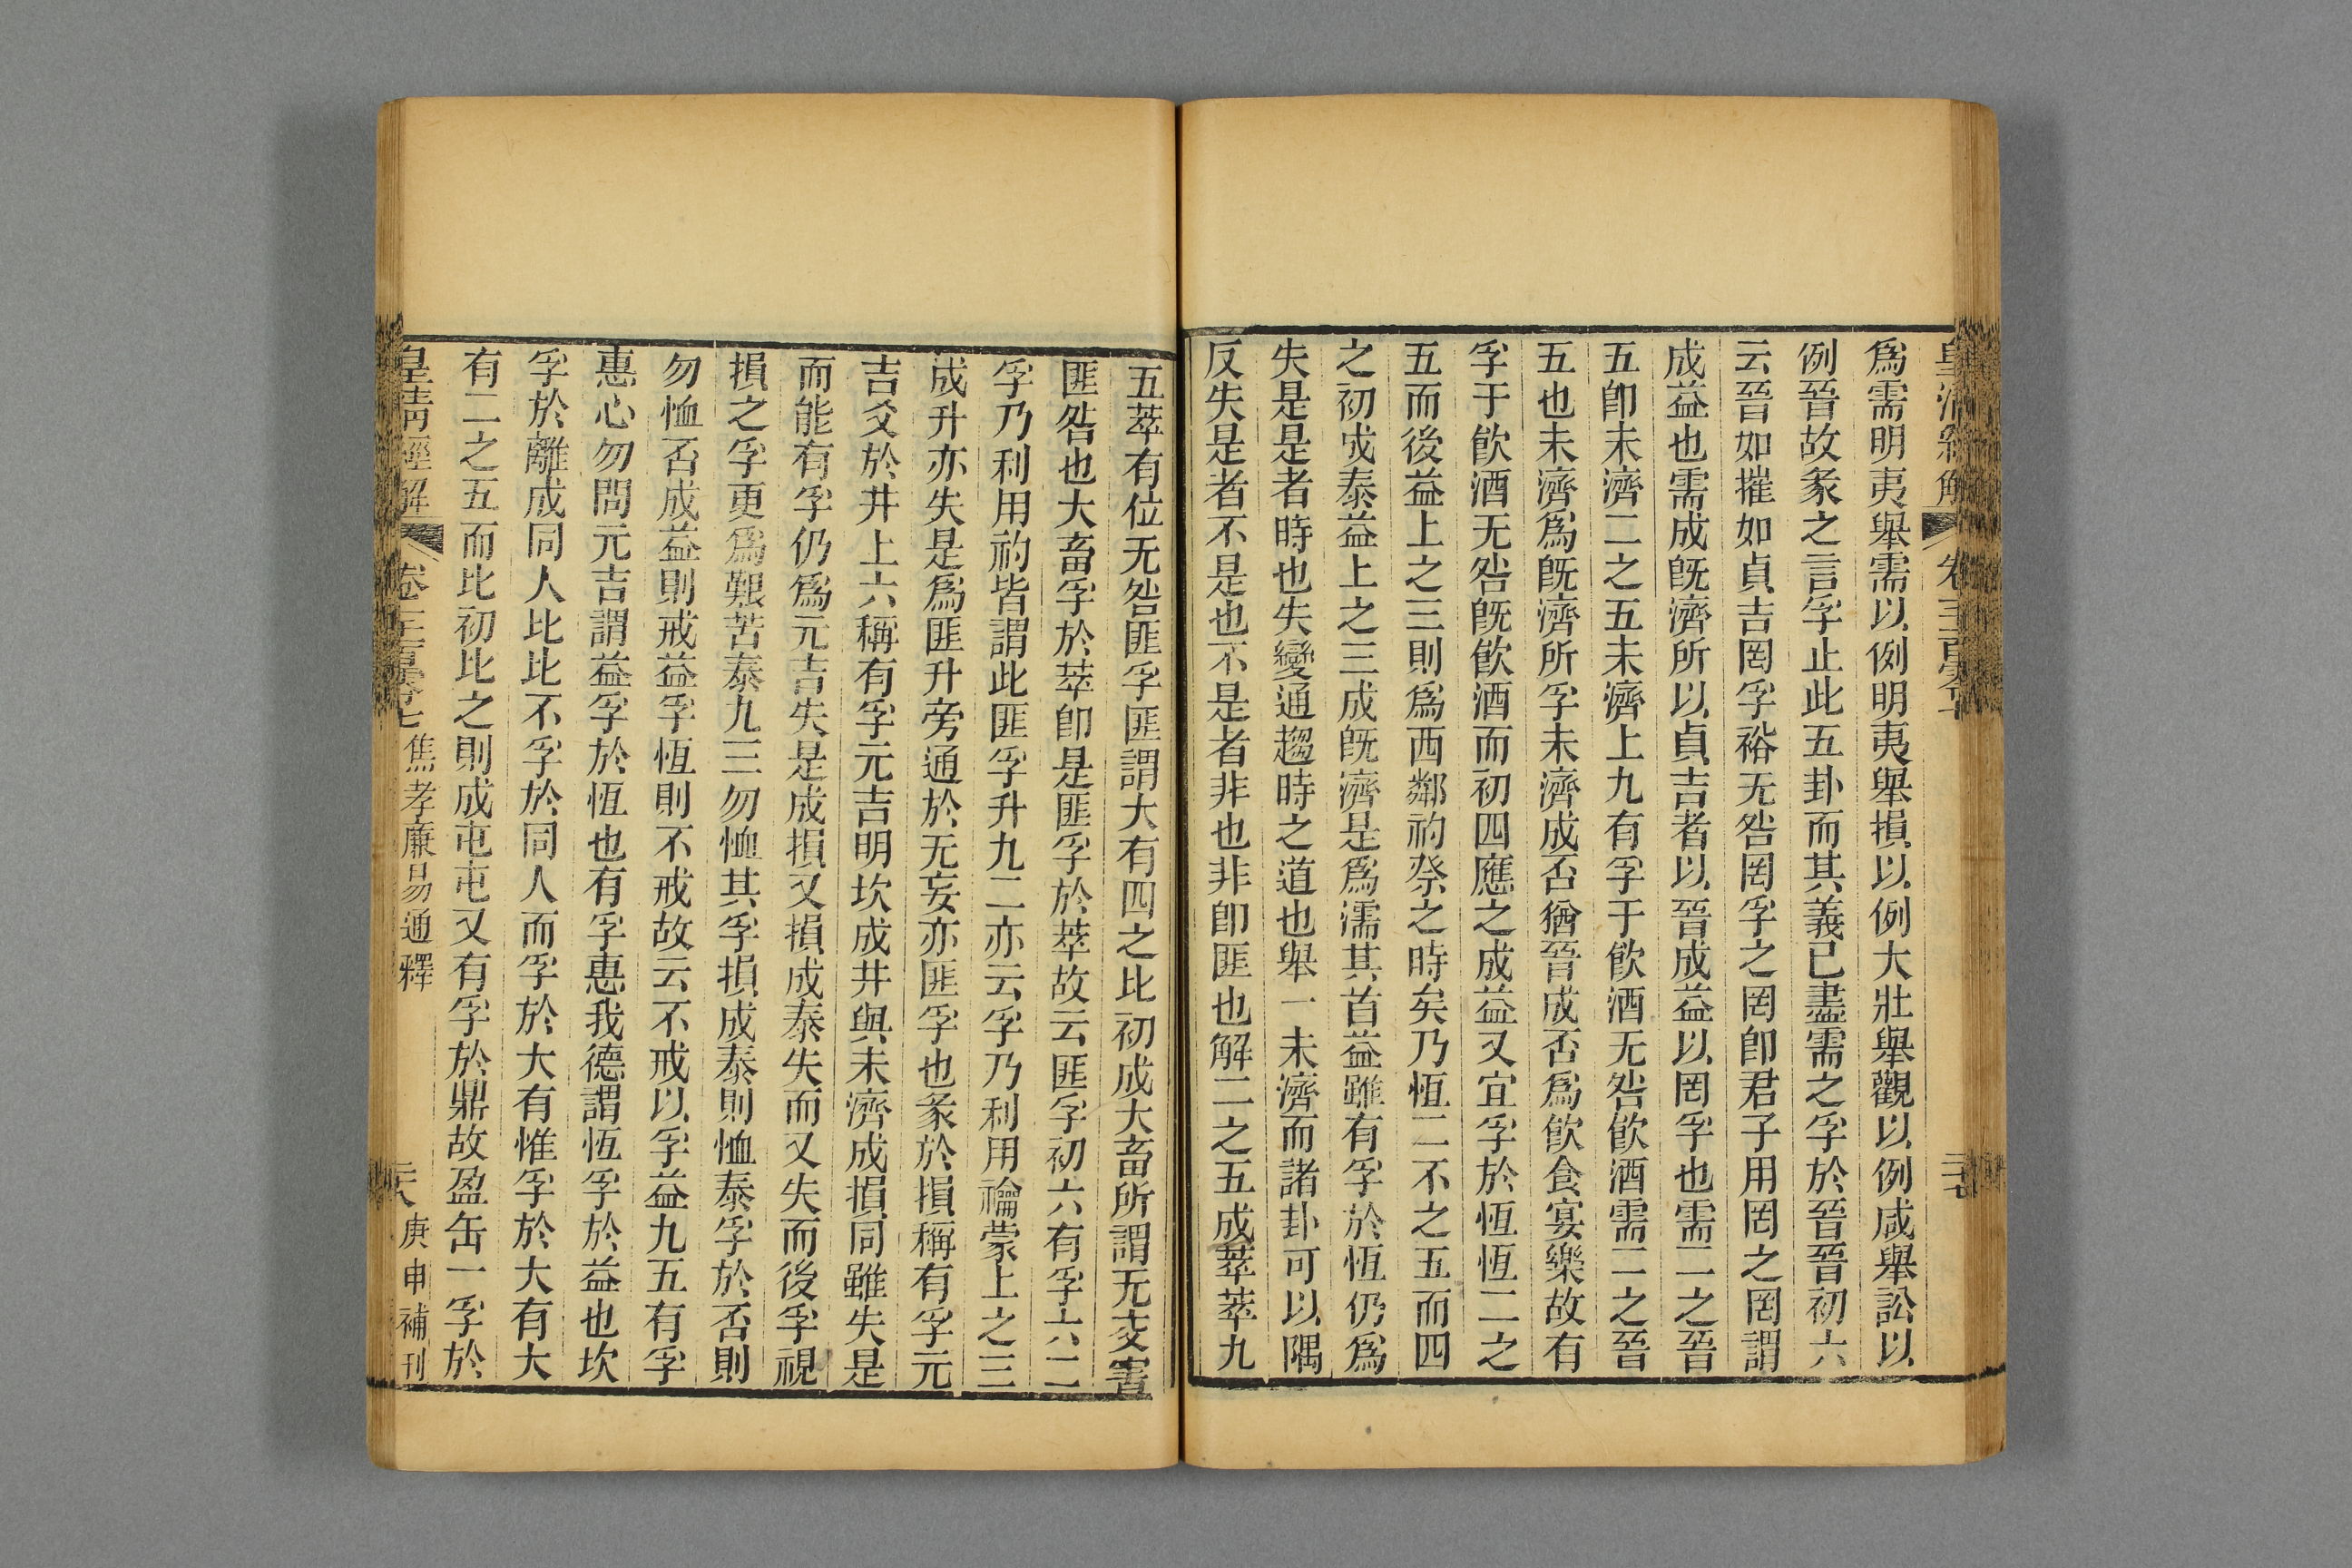 皇清經解
卷一千一百零七
二十七
爲需明夷舉需以例明夷舉損以例大壯舉觀以例咸舉訟以
例晉故彖之言孚止此五卦而其義已盡需之孚於晉晉初六
云晉如摧如貞吉罔孚裕无咎罔孚之罔卽君子用罔之罔謂
成益也需成旣濟所以貞吉者以晉成益以罔孚也需二之晉
五卽未濟二之五未濟上九有孚于飮酒无咎飮酒需二之晉
五也未濟爲旣濟所孚未濟成否猶晉成否爲飮食宴樂故有
孚于飮酒无咎旣飮酒而初四應之成益又宜孚於恆恆二之
五而後益上之三則爲西鄰礿祭之時矣乃恆二不之五而四
之初成泰益上之三成旣濟是爲濡其首益雖有孚於恆仍爲
失是是者時也失變通趨時之道也舉一未濟而諸卦可以隅
反失是者不是也不是者非也非卽匪也解二之五成萃萃九
五萃有位无咎匪孚匪謂大有四之比初成大畜所謂无交害
匪咎也大畜孚於萃卽是匪孚於萃故云匪孚初六有孚六二
孚乃利用禴皆謂此匪孚升九二亦云孚乃利用禴蒙上之三
成升亦失是爲匪升旁通於无妄亦匪孚也彖於損稱有孚元
吉爻於井上六稱有孚元吉明坎成井與未濟成損同雖失是
而能有孚仍爲元吉失是成損又損成泰失而又失而後孚視
損之孚更爲艱苦泰九三勿恤其孚損成泰則恤泰孚於否則
勿恤否成益則戒益孚恆則不戒故云不戒以孚益九五有孚
惠心勿問元吉謂益孚於恆也有孚惠我德謂恆孚於益也坎
孚於離成同人比比不孚於同人而孚於大有惟孚於大有大
有二之五而比初比之則成屯屯又有孚於鼎故盈缶一孚於
皇清經解
卷一千一百零七
焦孝廉易通釋
二十八
庚申補刊